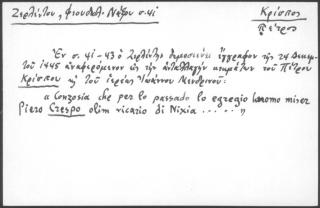 Ζερλέντου, Φεουδαλ. Νάξου σ. 41
Κρίσπος
Πέτρος
Ἐν σ. 41-43 ὁ Ζερλέντης δημοσιεύει ἔγγραφον τῆς 24 Δεκεμ-
τοῦ 1445 ἀναφερόμενον εἰς τὴν ἀνταλλαγὴν κτημάτων τοῦ Πέτρου
Κρίσπου καὶ τοῦ ἱερέως Ἰωάννου Μενδρινοῦ:
" Conzosia che per lo passado lo egregio homo miser
Piero Crespo olim vicario di Nixia ..... "